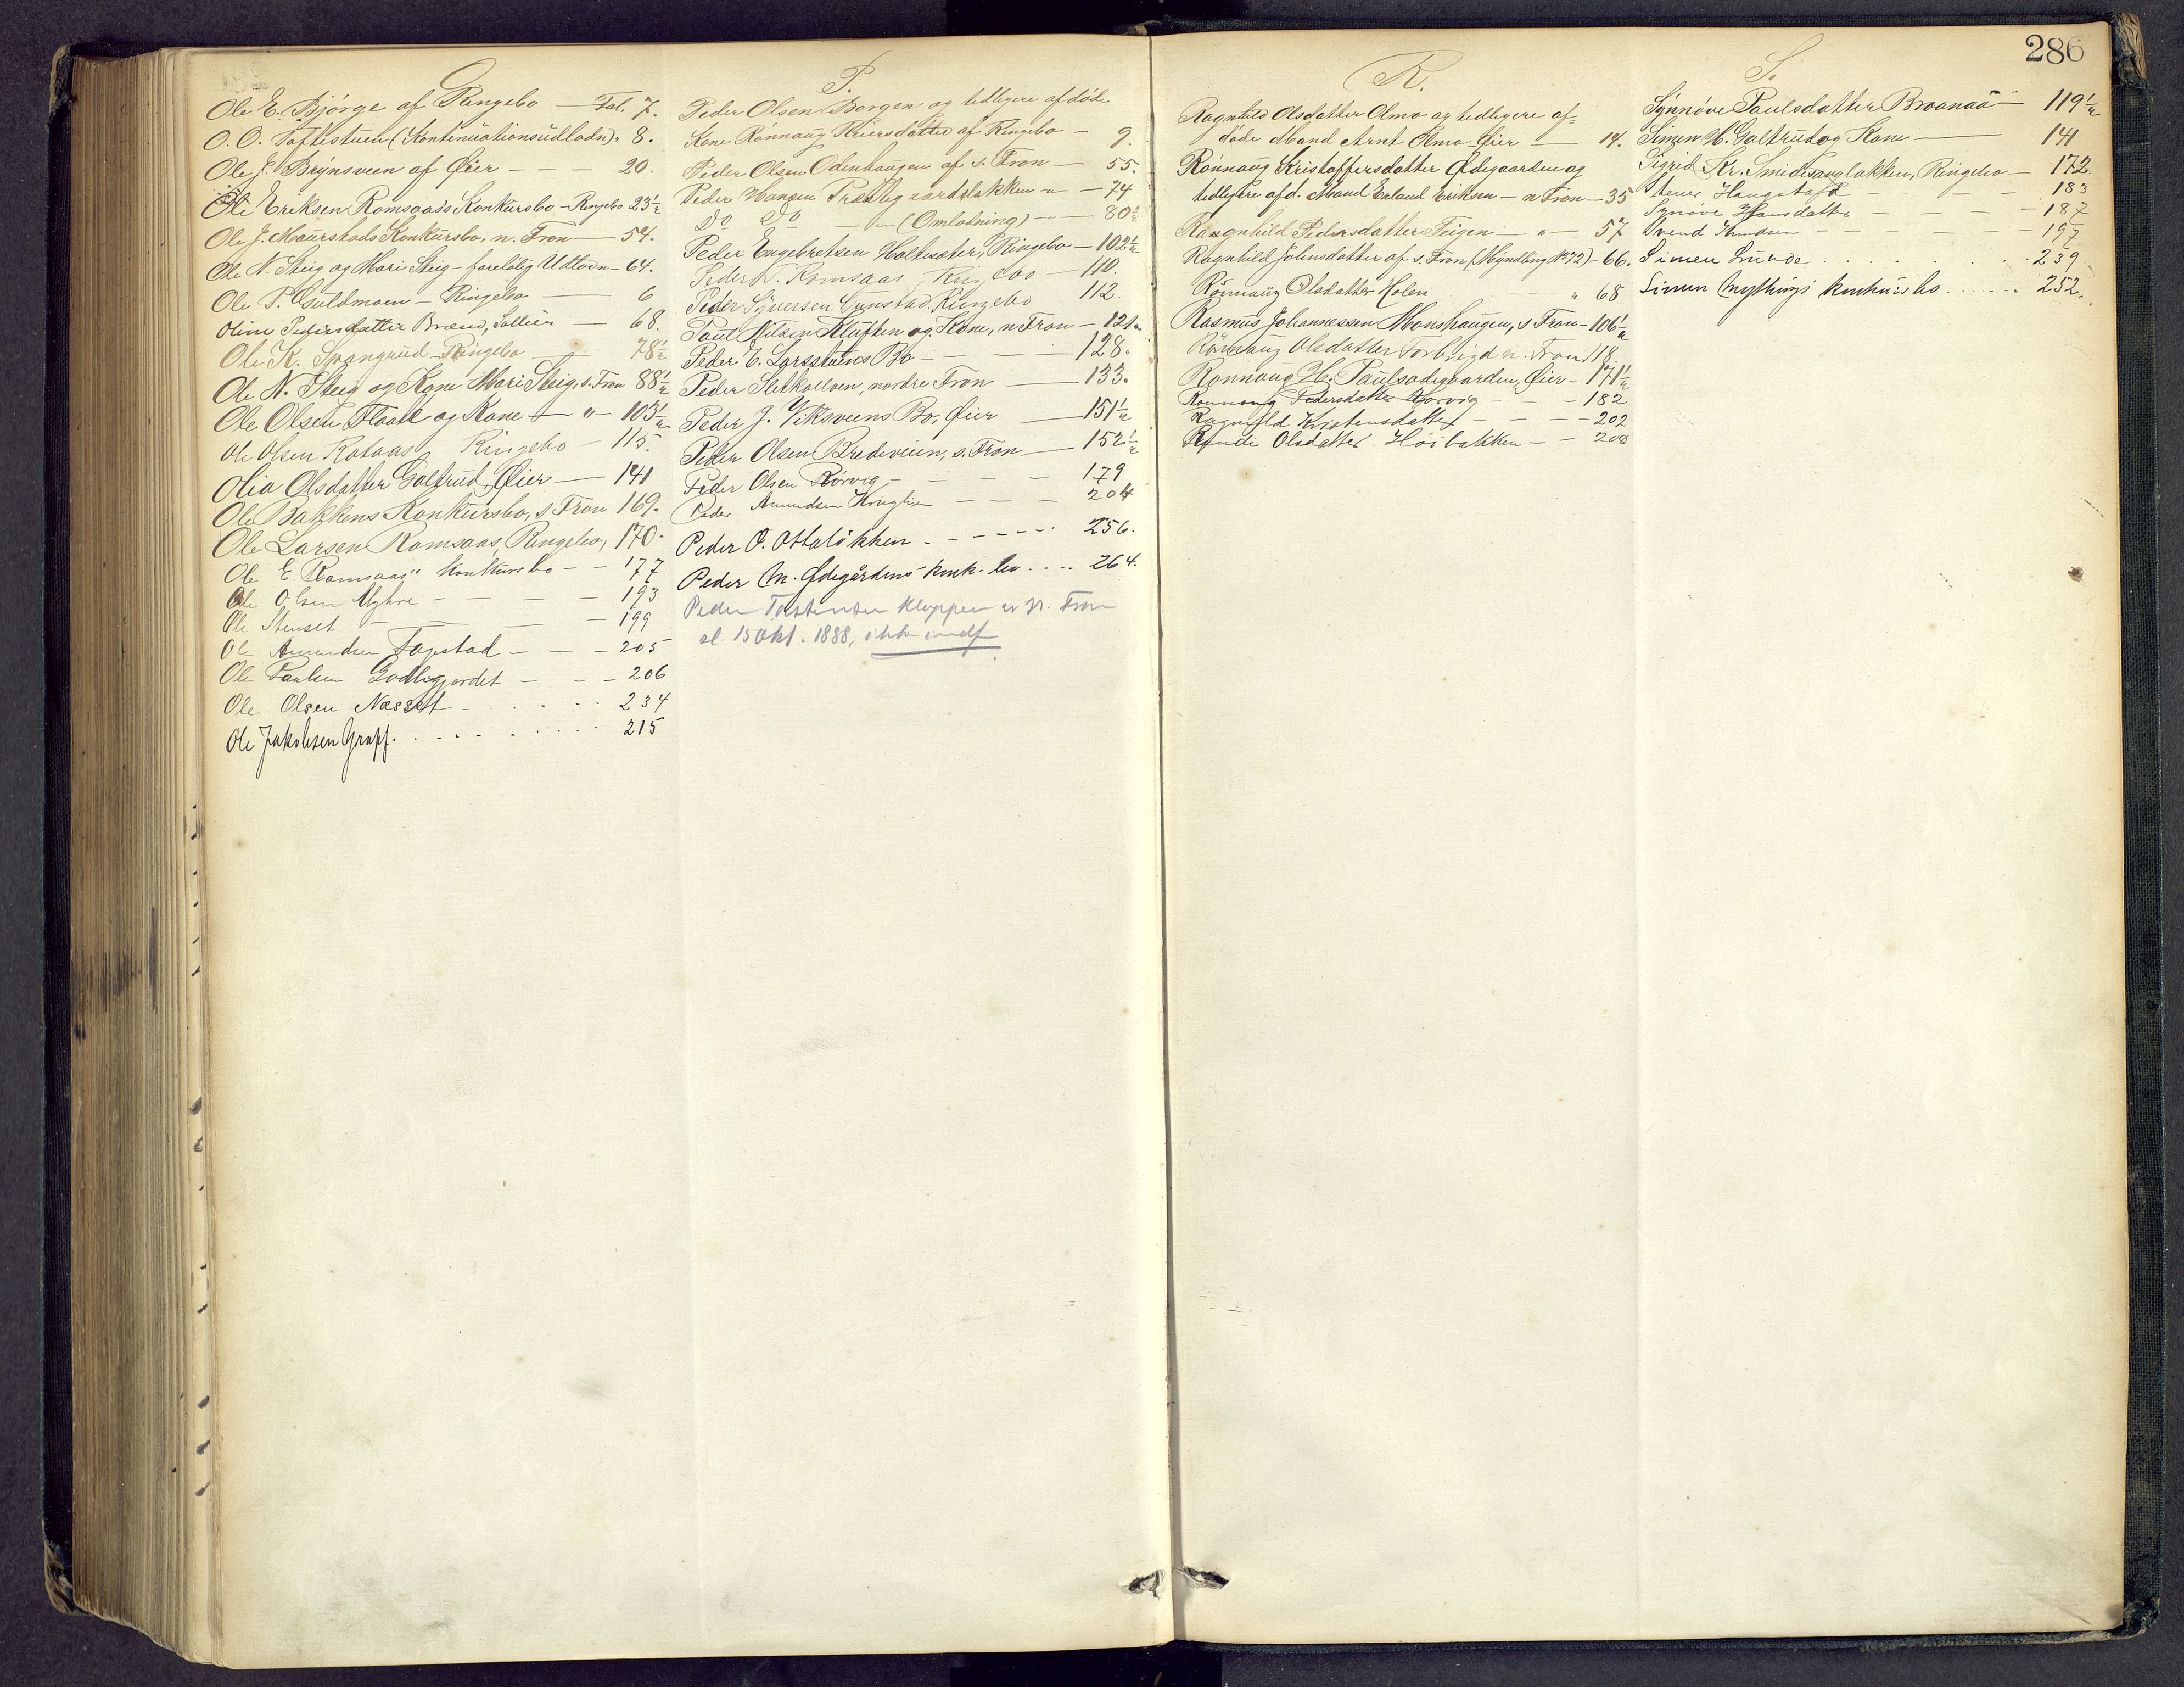 O.
Ole E. Bjørge af Ringebo — Fol. 7.
O. O. Toftestuen (Kontinuationsudlodn). 8.
Ole J. Brynsveen af Øier - - - 20.
Ole Eriksen Romsaas's Konkursbo - Ringebo 23½
Ole J. Maurstads Konkursbo, n. Fron — 54.
Ole N. Steig og Mari Steig - foreløbig Udlodn - 64.
Ole P. Guldmoen - Ringebo — 6
Oline Pedersdatter Brænd, Sollien — 68.
Ole K. Svangrud - Ringebo — 78½
Ole N. Steig og Kone Mari Steig, s. Fron 88½
Ole Olsen Flaate og Kone — " — 103½
Ole Olsen Kolaas Ringebo — 115.
Olia Olsdatter Galtrud, Øier — 141
Ole Bakkens Konkursbo, s Fron 169.
Ole Larsen Romsaas, Ringebo, 170.
Ole E. Ramsaas' Konkursbo - - 177
Ole Olsen Myhre - - - - 193
Ole Stenset - - - 199
Ole Amundsen Fagstad - - - 205
Ole Paulsen Godligjordet - - - 206
Ole Olsen Næsset - . . . . . 234
Ole Jakobsen Graff. . . . . . . . 215
P.
Peder Olsen Borgen og tidligere afdøde
Kone Rønnaug Iversdatter af Ringebo - 9.
Peder Olsen Odenhaugen af s. Fron — 55.
Peder Hansen Præstegaardsløkken - " - 74
Do Do - " - (Omlodning) — 80½
Peder Engebretsen Holtesæter, Ringebo — 102½
Peder N. Romsaas Ringebo — 110.
Peder Syversen Gunstad, Ringebo 112.
Paul Nilsen Kluften og Kone, n Fron — 121.
Peder E. Larsstuens Bo — 128.
Peder Sletkolloen, nordre Fron — 133.
Peder J. Viksveens Bo, Øier — 151½
Peder Olsen Bredeveien, s. Fron — 152½
Peder Olsen Rørvig - - - - 179
Peder Amundsen - - - 204
Peder O. Ottaløkken - - - - - 256.
Peder M. Ødegårdens konk. bo . . . . 264.
Peder Tostensen Kloppen n. Fron
15 Okt. 1888, ikke
R.
Ragnhild Olsdatter Olmo og tidligere af=
døde Mand Arnt Olmo - Øier — 14.
Rønnaug Kristoffersdatter Ødegaarden og
tidligere afd. Mand Erland Eriksen - n Fron — 35
Ragnhild Pedersdatter Teigen — " — 57
Ragnhild Johnsdatter af s. Fron (Myndling № 72) - 66.
Rønnaug Olsdatter Holen " 68
Rasmus Johannessen Monshaugen, s Fron — 106½
Rønnaug Olsdatter Forbrigd n. Fron 118.
Rønnaug H. Paulsødegaarden, Øier — 171½
Rønnaug Pedersdatter Rørvig - - - 182
Ragnhild Kristensdatter - - - 202
Randi Olsdatter Høibakken - - 208
S.
286
Synnøve Paulsdatter Broanaa — 119½
Simen H. Galtrud og Kone — 141
Sigrid Kr. Smidesangløkken, Ringebo — 172.
Stener Haugstad - - - 183
Synøve Hansdatter - - - - 187
Svend Amundsen - - - - - 197
Simen Lunde . . . . . . . 239
Simen Mythings konkursbo . . . . . . 252.